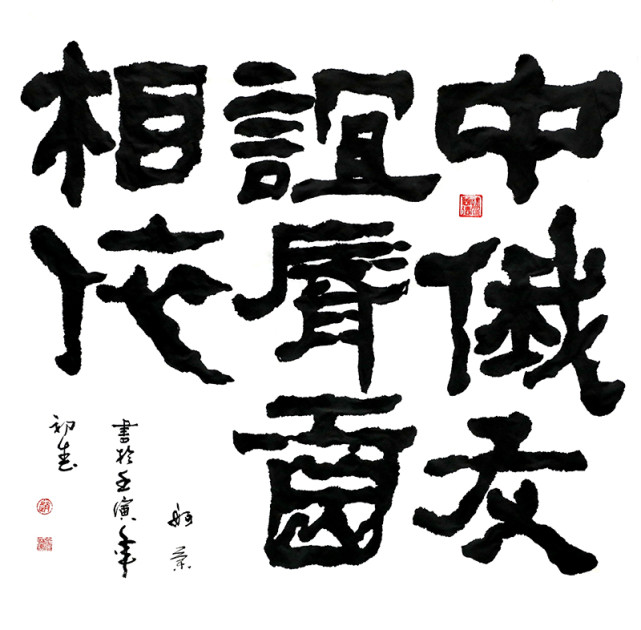 中俄友
誼脣齒
相依
書於壬寅年
初春